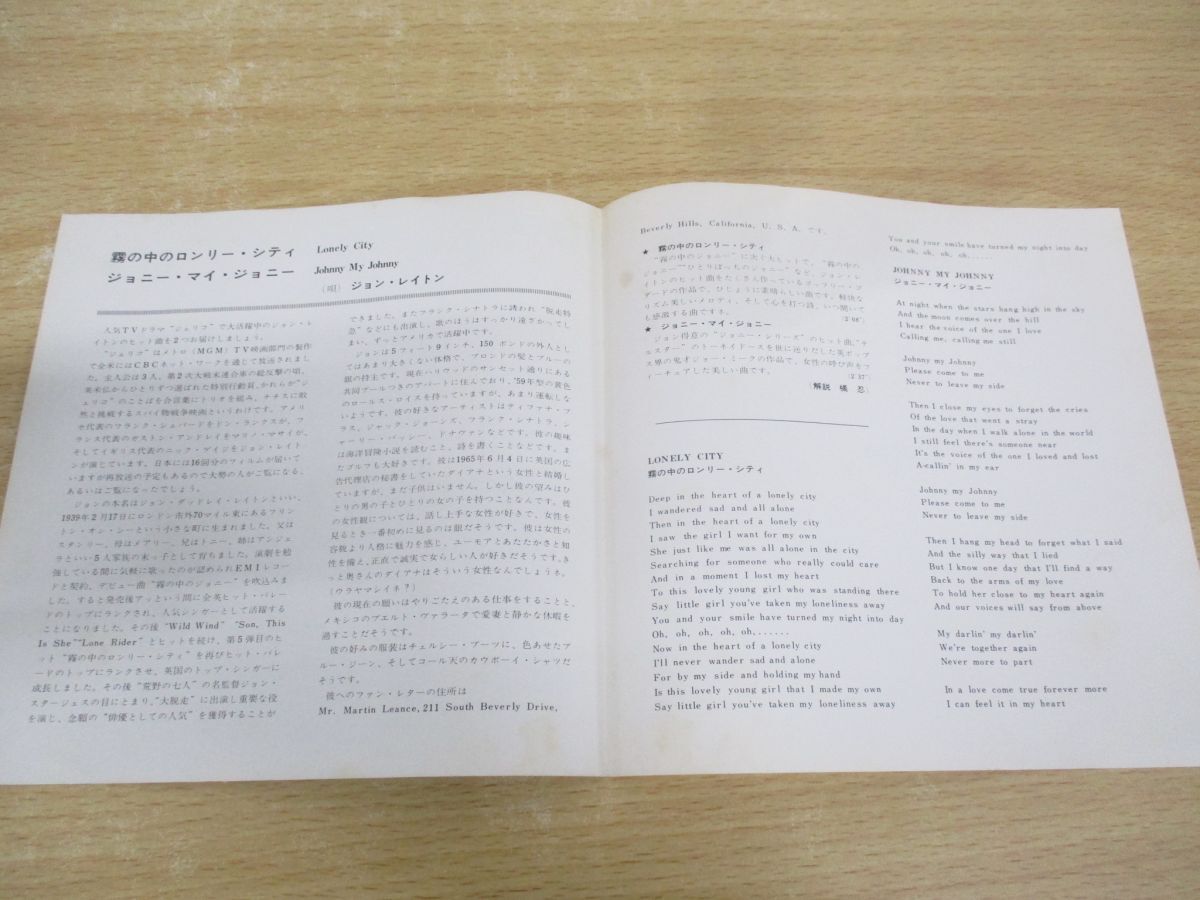 霧の中のロンリー・シティ Lonely City
ジョニー・マイ・ジョニー Johnny My Johnny
(唄) ジョン・レイトン
人気TVドラマ“ジェリコ”で大活躍中のジョン・レ
イトンのヒット曲を2つお届けしましょう。
“ジェリコ”はメトロ(MGM)TV映画部門の製作
で全米にはCBCネット・ワークを通じて放送されまし
た。主人公は3人、第2次大戦米連合軍の総反撃の頃、
英米仏からひとりずつ選ばれた特別行動員、かれらが“ジ
ェリコ”のことばを合言葉にトリオを組み、ナチスに敢
然と挑戦するスパイ物戦争映画というわけです。アメリ
カ代表のフランク・シェパードをドン・フランクスが、フ
ランス代表のガストン・アンドレイをマリノ・マサイが、
そしてイギリス代表のニック・ゲイジをジョン・レイト
ンが演じています。日本には16回分のフィルムが届いて
いますが再放送の予定もあるので大勢の人がご覧になる、
あるいはご覧になったでしょう。
ジョンの本名はジョン・ダッドレイ・レイトンといい、
1939年2月17日にロンドン市外70マイル東にあるフリン
トン・オン・シーという小さな町に生まれました。父は
スタンリー、母はメアリー、兄はトニー、姉はアンジェ
ラといい5人家族の末っ子として育ちました。演劇を勉
強している間に気軽に歌ったのが認められEMIレコー
ドと契約、デビュー曲“霧の中のジョニー”を吹込みま
した。すると発売後アッという間に全英ヒット・パレー
ドのトップにランクされ、人気シンガーとして活躍する
ことになりました。その後“Wild Wind” “Son, This
Is She”“Lone Rider”とヒットを続け、第5弾目のヒ
ット“霧の中のロンリー・シティ”を再びヒット・パレ
ードのトップにランクさせ、英国のトップ・シンガーに
成長しました。その後“荒野の七人”の名監督ジョン・
スタージェスの目にとまり、“大脱走”に出演し重要な役
を演じ、念願の“俳優としての人気”を獲得することが
できました。またフランク・シナトラに誘われ“脱走特
急”などにも出演し、歌のほうはすっかり遠ざかってし
まい、ずっとアメリカで活躍中です。
ジョンは5フィート9インチ、150ポンドの外人とし
てはあまり大きくない体格で、ブロンドの髪とブルーの
眼の持主です。現在ハリウッドのサンセット通りにある
共同プールつきのアパートに住んでおり、'59年型の黄色
のロールス・ロイスを持っていますが、あまり運転しな
いようです。彼の好きなアーティストはティファナ・ブ
ラス、ジャック・ジョーンズ、フランク・シナトラ、シ
ャーリー・バッシー、ドナヴァンなどです。彼の趣味
は海洋冒険小説を読むこと、詩を書くことなどです。ま
たゴルフも大好きです。彼は1965年6月4日に英国の広
告代理店の秘書をしていたダイアナという女性と結婚し
ていますが、まだ子供はいません。しかし彼の望みはひ
とりの男の子とひとりの女の子を持つことなんです。彼
の女性観については、話し上手な女性が好きで、女性を
見るとき一番初めに見るのは眼だそうです。彼は女性の
容貌より人格に魅力を感じ、ユーモアとあたたかさと知
性を備え、正直で誠実で女らしい人が好きだそうです。き
っと奥さんのダイアナはそういう女性なんでしょうネ。
(ウラヤマシイネ?)
彼の現在の願いはやりごたえのある仕事をすることと、
メキシコのプエルト・ヴァラータで愛妻と静かな休暇を
過すことだそうです。
彼の好みの服装はチェルシー・ブーツに、色あせたブ
ルー・ジーン、そしてコール天のカウボーイ・シャツだ
そうです。
彼へのファン・レターの住所は
Mr. Martin Leance, 211 South Beverly Drive,
Beverly Hills, California, U. S. A. です。
★ 霧の中のロンリー・シティ
“霧の中のジョニー”に次ぐ大ヒットで、“霧の中の
ジョニー”“ひとりぼっちのジョニー”など、ジョン・レ
イトンのヒット曲をたくさん作っているジェフリー・ゴ
ダードの作品で、ひじょうに素晴らしい曲です。軽快な
リズム美しいメロディ、そして心を打つ詩、いつ聞いて
も感激する曲ですネ。
(2'08")
★ ジョニー・マイ・ジョニー
ジョン得意の“ジョニー・シリーズ”のヒット曲。“テ
ルスター”のトーネイドースを世に送りだした英ポップ
ス界の鬼才ジョー・ミークの作品で、女性の呼び声をフ
ィーチュアした美しい曲です。
(2'37")
解説 忍
LONELY CITY
霧の中のロンリー・シティ
Deep in the heart of a lonely city
I wandered sad and all alone
Then in the heart of a lonely city
I saw the girl I want for my own
She just like me was all alone in the city
Searching for someone who really could care
And in a moment I lost my heart
To this lovely young girl who was standing there
Say little girl you've taken my loneliness away
You and your smile have turned my night into day
Oh, oh, oh, oh, oh,.......
Now in the heart of a lonely city
I'll never wander sad and alone
For by my side and holding my hand
Is this lovely young girl that I made my own
Say little girl you've taken my loneliness away
You and your smile have turned my night into day
Oh, oh, oh, oh, oh,......
JOHNNY MY JOHNNY
ジョニー・マイ・ジョニー
At night when the stars hang high in the sky
And the moon comes over the hill
I hear the voice of the one I love
Calling me, calling me still
Johnny my Johnny
Please come to me
Never to leave my side
Then I close my eyes to forget the cries
Of the love that went a stray
In the day when I walk alone in the world
I still feel there's someone near
It's the voice of the one I loved and lost
A-callin' in my ear
Johnny my Johnny
Please come to me
Never to leave my side
Then I hang my head to forget what I said
And the silly way that I lied
But I know one day that I'll find a way
Back to the arms of my love
To hold her close to my heart again
And our voices will say from above
My darlin' my darlin'
We're together again
Never more to part
In a love come true forever more
I can feel it in my heart